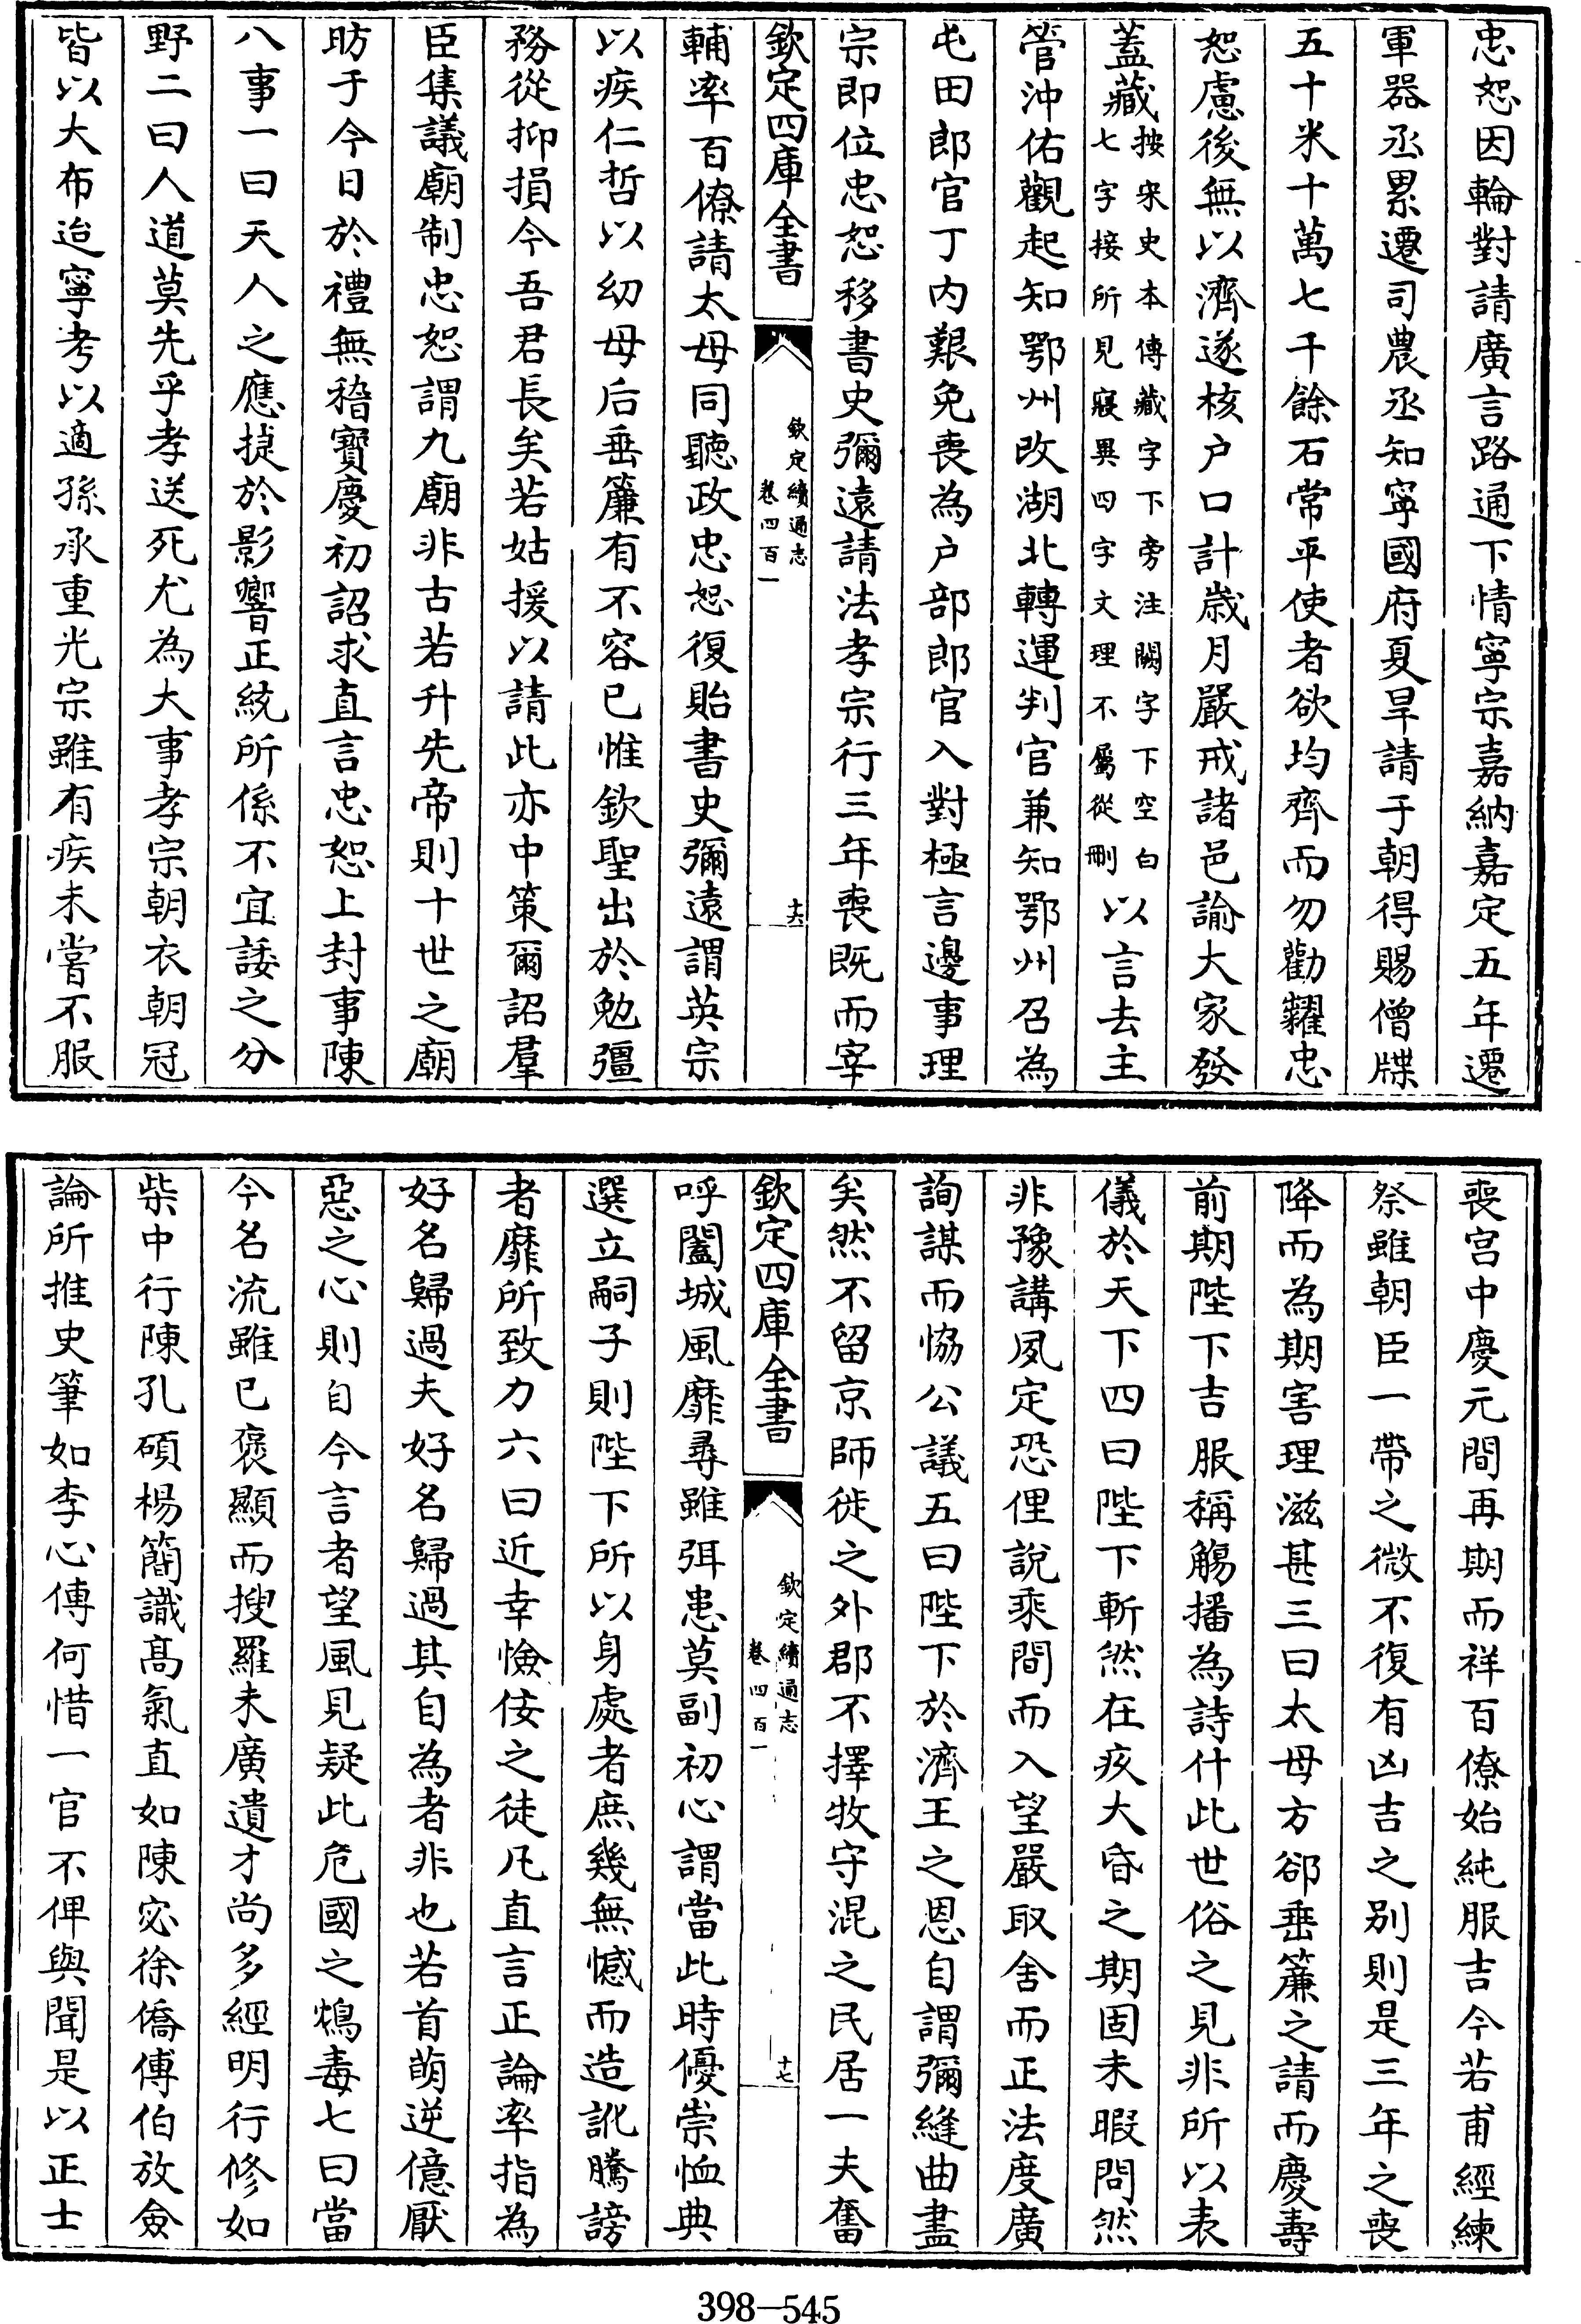 忠恕因輪對請廣言路通下情寧宗嘉納嘉定五年遷
軍器丞累遷司農丞知寧國府夏旱請于朝得賜僧牒
五十米十萬七千餘石常平使者欲均齊而勿勸糶忠
恕慮後無以濟遂核户口計歲月嚴戒諸邑諭大家發
蓋藏按宋史本傳藏字下旁注闕字下空白七字接所見寢異四字文理不屬從刪以言去主
管沖佑觀起知鄂州改湖北轉運判官兼知鄂州召為
屯田郎官丁内艱免喪為户部郎官入對極言邊事理
宗即位忠恕移書史彌遠請法孝宗行三年喪既而宰
欽定四庫全書
欽定續通志
卷四百一
十六
輔率百僚請太母同聽政忠恕復貽書史彌遠謂英宗
以疾仁哲以幼母后垂簾有不容已惟欽聖出於勉彊
務從抑損今吾君長矣若姑援以請此亦中策爾詔羣
臣集議廟制忠恕謂九廟非古若升先帝則十世之廟
昉于今日於禮無稽寶慶初詔求直言忠恕上封事陳
八事一曰天人之應捷於影響正統所係不宜諉之分
野二曰人道莫先乎孝送死尤為大事孝宗朝衣朝冠
皆以大布迨寧考以適孫承重光宗雖有疾未嘗不服
喪宫中慶元間再期而祥百僚始純服吉今若甫經練
祭雖朝臣一帶之微不復有凶吉之别則是三年之喪
降而為期害理滋甚三曰太母方郤垂簾之請而慶壽
前期陛下吉服稱觴播為詩什此世俗之見非所以表
儀於天下四曰陛下斬然在疚大昏之期固未暇問然
非豫講夙定恐俚說乘間而入望嚴取舍而正法度廣
詢謀而恊公議五曰陛下於濟王之恩自謂彌縫曲盡
矣然不留京師徙之外郡不擇牧守混之民居一夫奮
欽定四庫全書
欽定續通志
卷四百一
十七
呼闔城風靡尋雖弭患莫副初心謂當此時優崇恤典
選立嗣子則陛下所以身處者庶幾無憾而造訛騰謗
者靡所致力六曰近幸憸佞之徒凡直言正論率指為
好名歸過夫好名歸過其自為者非也若首萌逆億厭
惡之心則自今言者望風見疑此危國之鴆毒七曰當
今名流雖已褒顯而搜羅未廣遺才尚多經明行修如
柴中行陳孔碩楊簡識高氣直如陳宓徐僑傅伯放僉
論所推史筆如李心傳何惜一官不俾與聞是以正士
398—545